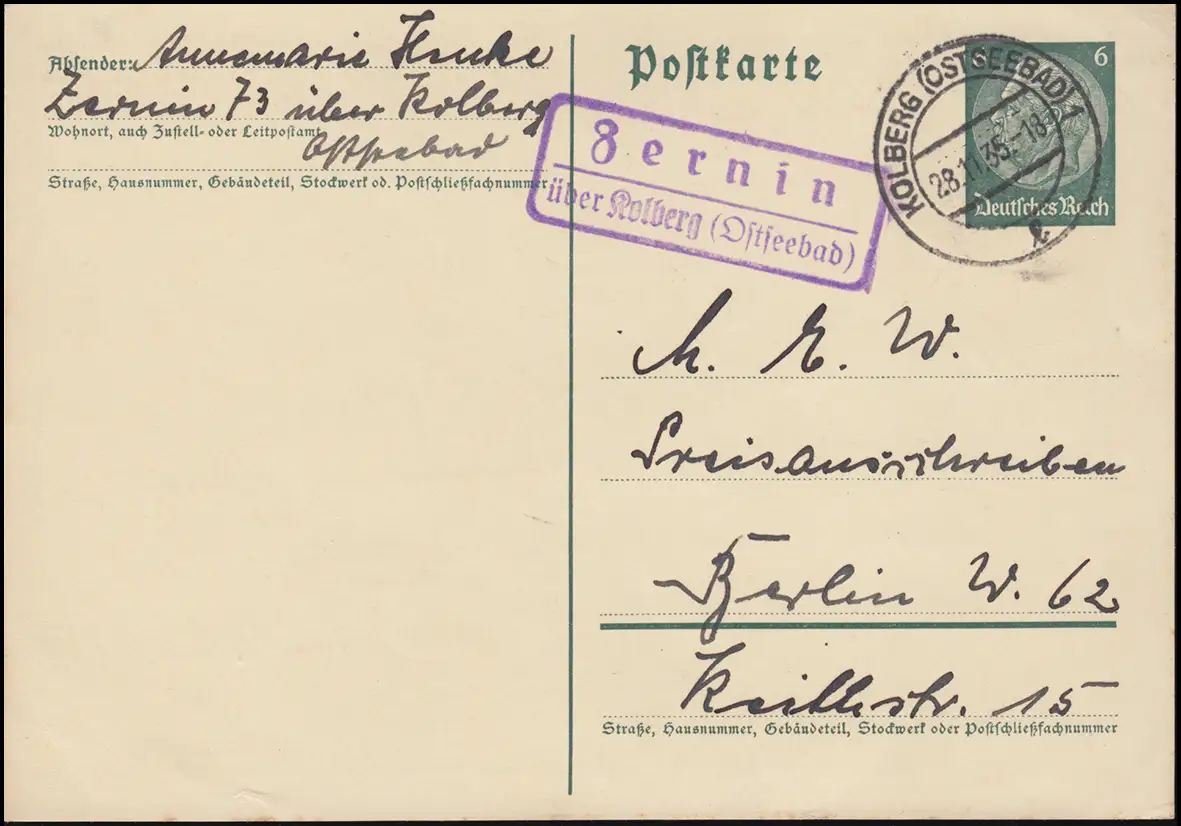 Absender: Annemarie Henke
Zernin 73 über Kolberg
Wohnort, auch Zustell- oder Leitpostamt
Ostseebad
Straße, Hausnummer, Gebäudeteil, Stockwerk od. Postschließfachnummer
Postkarte
6
Deutsches Reich
KOLBERG (OSTSEEBAD) 1
28.11.35.-18
Zernin
über Kolberg (Ostseebad)
M. E. W.
Preisausschreiben
Berlin W. 62
Keithstr. 15
Straße, Hausnummer, Gebäudeteil, Stockwerk oder Postschließfachnummer